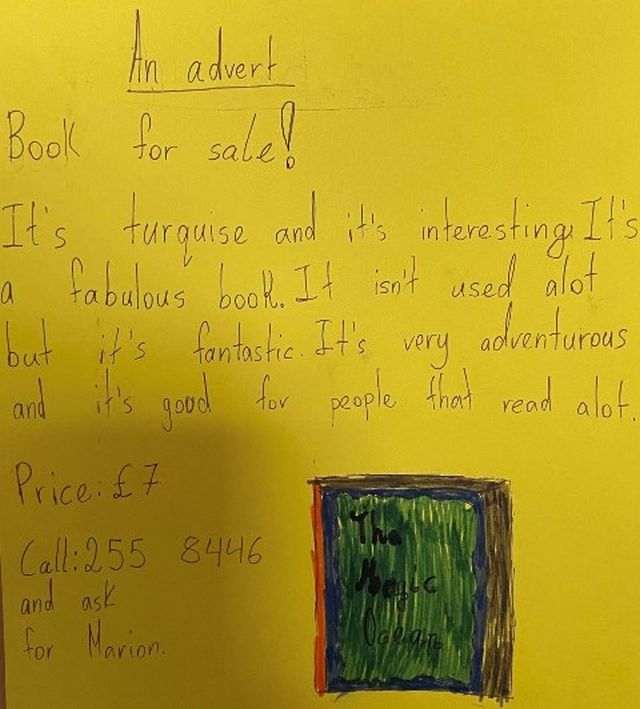 An advert
Book for sale!
It's turquise and it's interesting. It's
a fabulous book. It isn't used alot
but it's fantastic. It's very adventurous
and it's good for people that read alot.
Price: £7
Call: 255 8446
and ask
for Marion.
The
Magic
Ocean